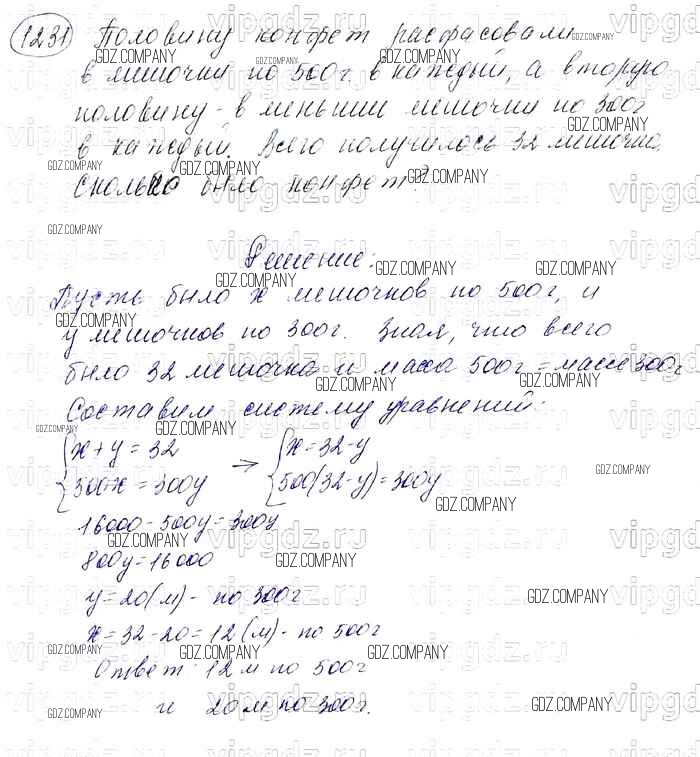 1231 Половину конфет расфасовали
в мешочки по 500г в каждый, а вторую
половину - в меньшии мешочки по 300г
в каждый. Всего получилось 32 мешочка.
Сколько было конфет?
Решение:
Пусть было x мешочков по 500г, и
y мешочков по 300г. Зная, что всего
было 32 мешочка и масса 500г = массе 300г
Составим систему уравнений:
{x + y = 32 → {x = 32 - y
{500·x = 300y {500(32-y) = 300y
16000 - 500y = 300y
800y = 16000
y = 20(м) - по 300г
x = 32 - 20 = 12(м) - по 500г
Ответ: 12м по 500г
и 20м по 300г.
GDZ.COMPANY
vipgdz.ru